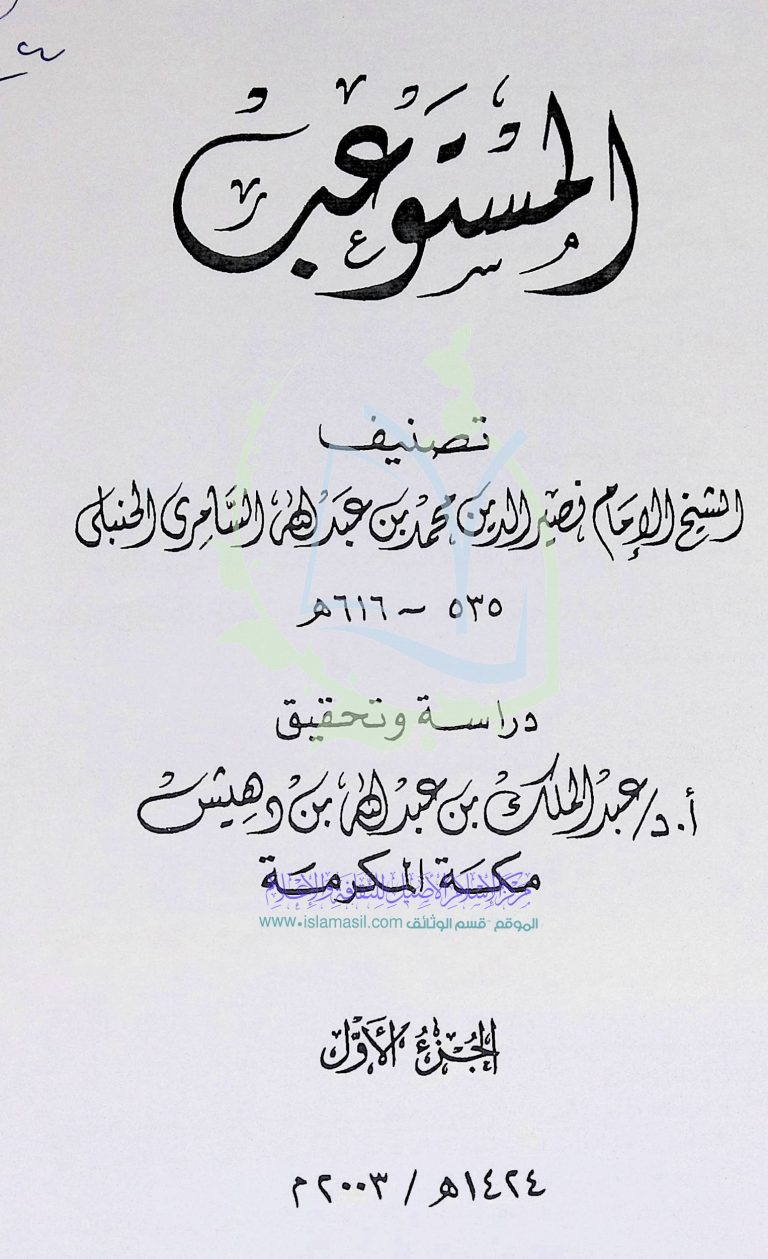 المستوعب
تصنيف
الشيخ الإمام نصير الدين محمد بن عبد الله السامري الحنبلي
٥٣٥ ~ ٦١٦ه
دراسة وتحقيق
أ.د/ عبد الملك بن عبد الله بن دهيش
مكة المكرمة
مركز الإسلام الأصيل للثقافة والإعلام
الموقع - قسم الوثائق www.islamasil.com
الجزء الأول
١٤٢٤ه / ٢٠٠٣م